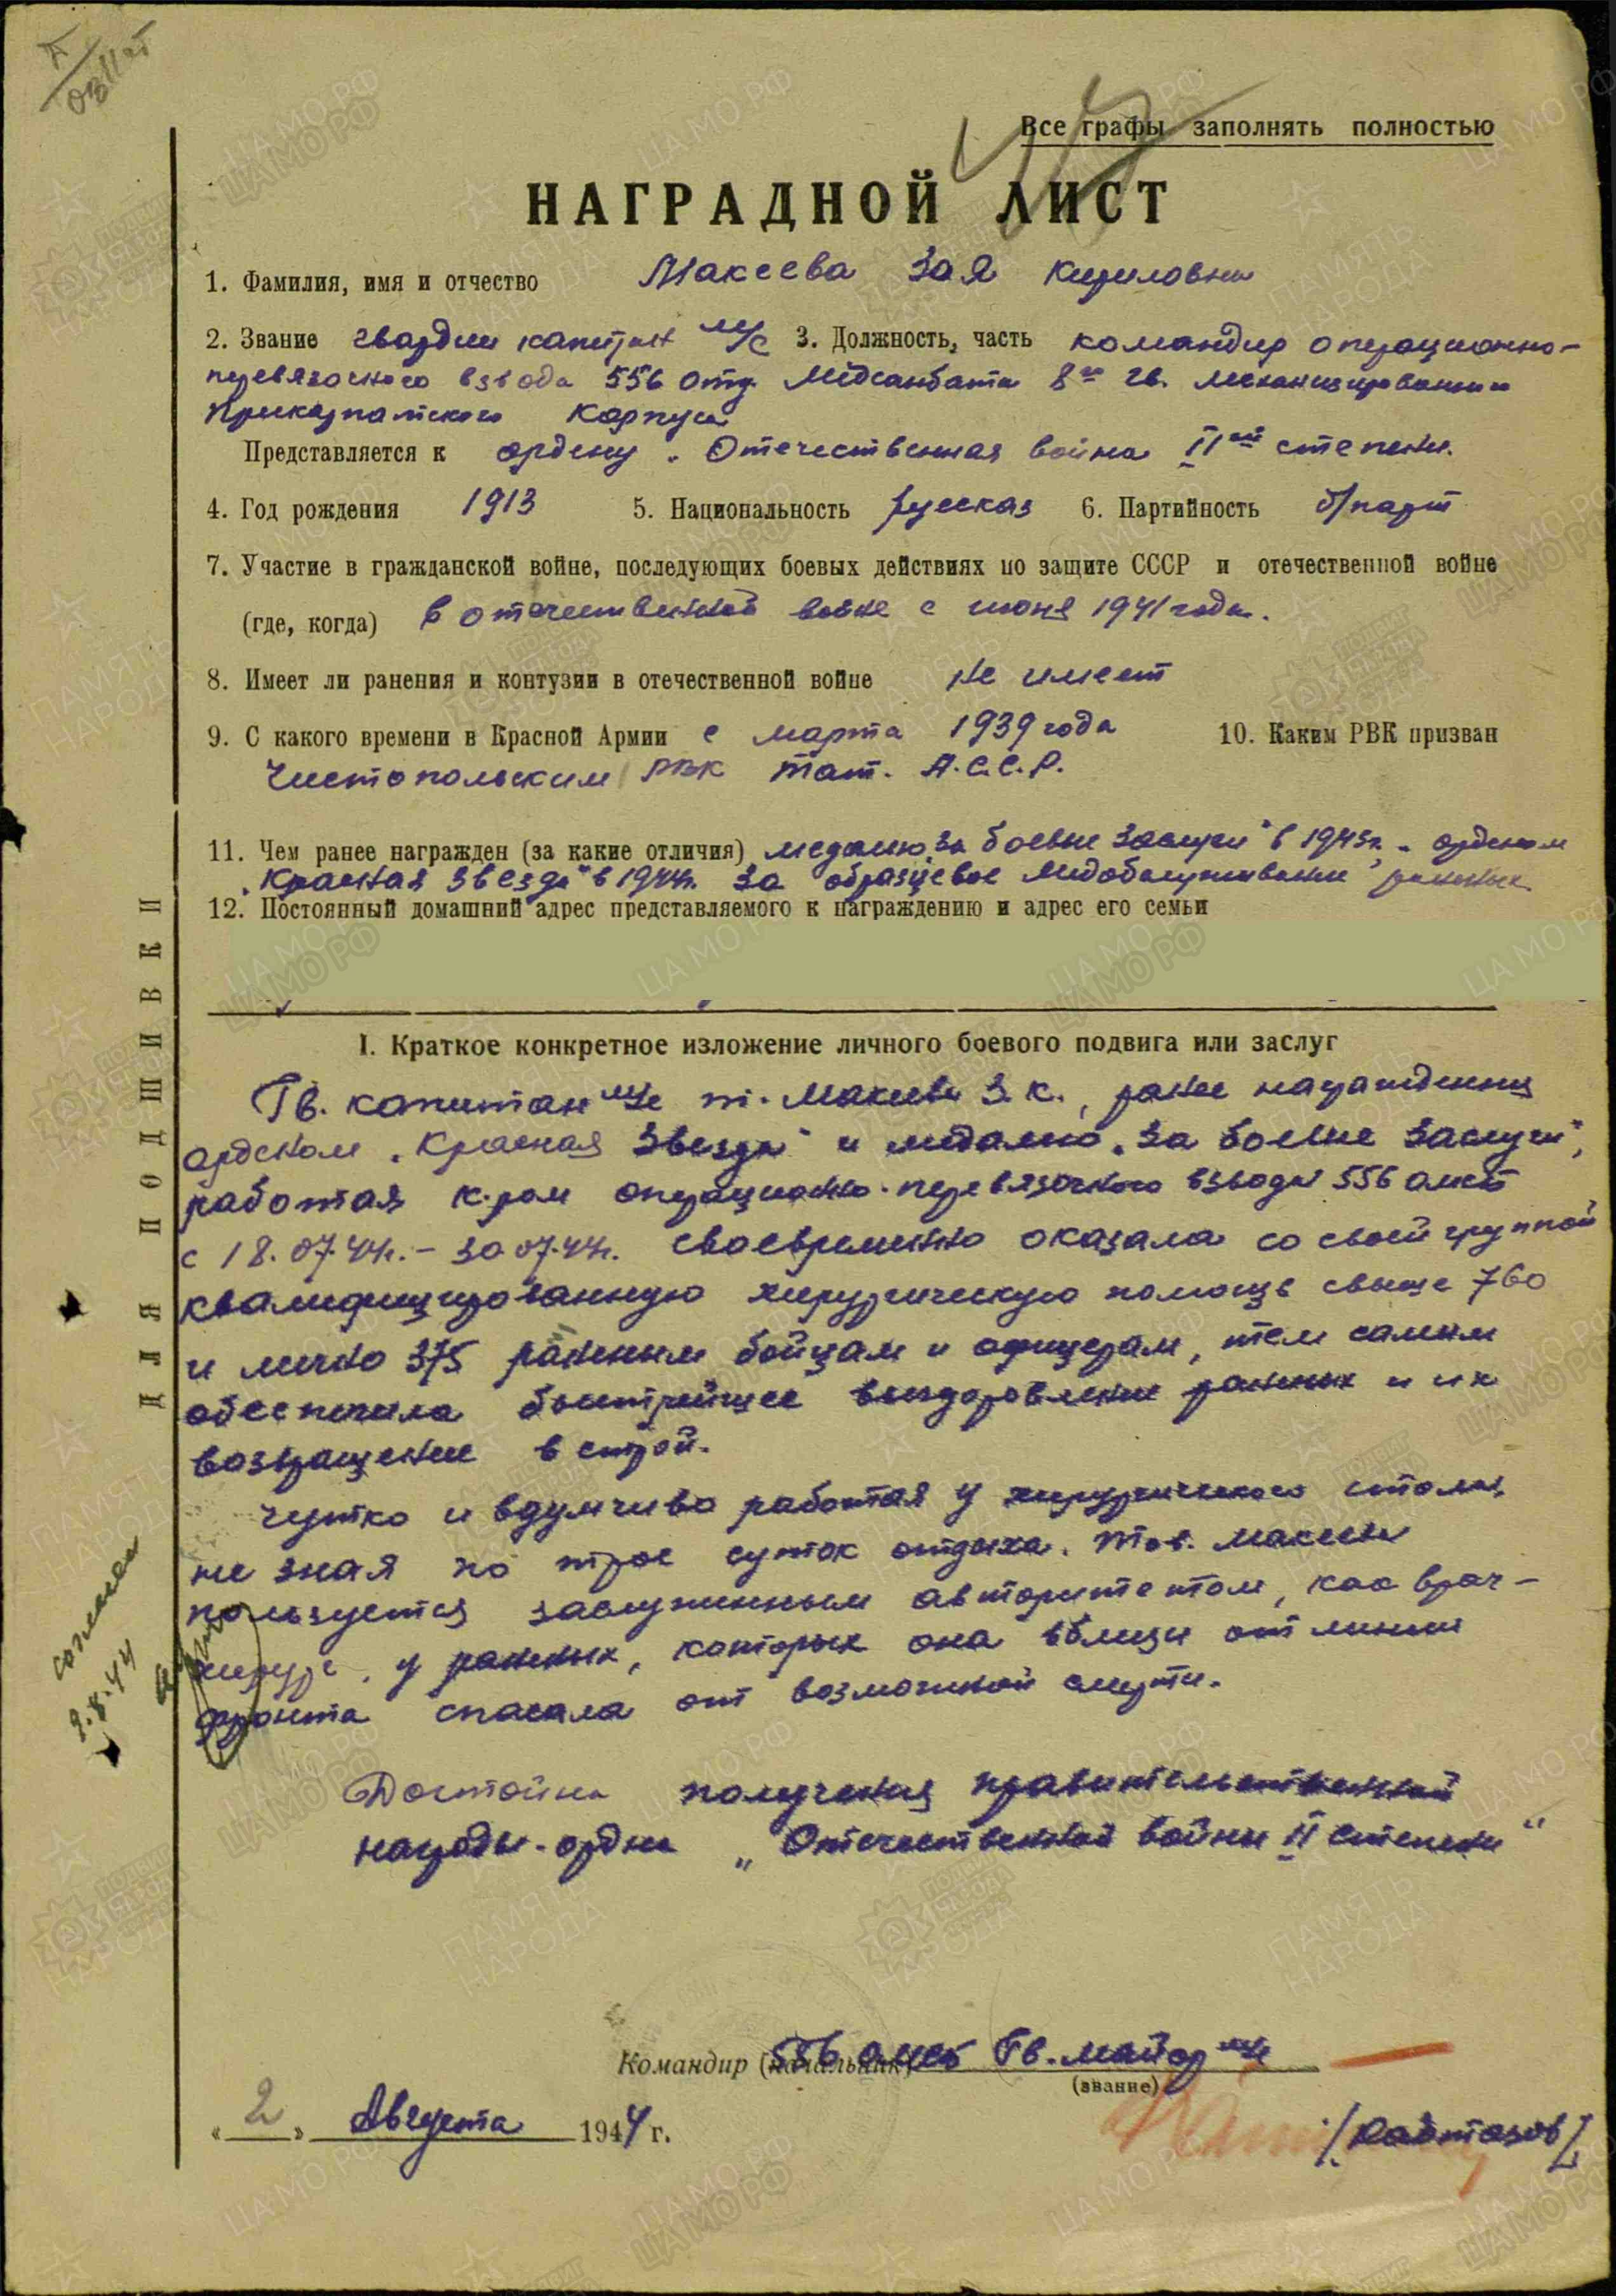 Все графы заполнять полностью
НАГРАДНОЙ ЛИСТ
1. Фамилия, имя и отчество Макеева Зоя Кириловна
2. Звание гвардии капитан м/с 3. Должность, часть командир операционно-
перевязочного взвода 556 отд. Медсанбата 8го гв. механизированного
Прикарпатского Корпуса
Представляется к ордену „Отечественная война IIой степени.
4. Год рождения 1913 5. Национальность русская 6. Партийность б/парт
7. Участие в гражданской войне, последующих боевых действиях по защите СССР и отечественной войне
(где, когда) в отечественной войне с июня 1941 года.
8. Имеет ли ранения и контузии в отечественной войне не имеет
9. С какого времени в Красной Армии с марта 1939 года 10. Каким РВК призван
Чистопольским РВК Тат. А.С.С.Р.
11. Чем ранее награжден (за какие отличия) медалью „За боевые заслуги" в 1943г., орденом
„Красная Звезда" в 1944г. за образцовое медобслуживание раненых.
12. Постоянный домашний адрес представляемого к награждению и адрес его семьи
ДЛЯ ПОДШИВКИ
I. Краткое конкретное изложение личного боевого подвига или заслуг
Гв. капитан м/с т. Макеева З.К., ранее награжденная
орденом „Красная Звезда" и медалью „За боевые заслуги",
работая к-ром операционно-перевязочного взвода 556 омсб
с 18.07.44г. - 30.07.44г. своевременно оказала со своей группой
квалифицированную хирургическую помощь свыше 760
и лично 375 раненым бойцам и офицерам, тем самым
обеспечила быстрейшее выздоровление раненых и их
возвращение в строй.
Чутко и вдумчиво работая у хирургического стола,
не зная по трое суток отдыха. Тов. Макеева
пользуется заслуженным авторитетом, как врач-
хирург, у раненых, которых она вблизи от линии
фронта спасала от возможной смерти.
Достойна получения правительственной
награды - ордена „Отечественной войны II степени"
согласен
2.8.44
Командир (начальник) 556 омсб Гв. майор м/с
(звание)
«2» Августа 1944 г.
/Кайтазов/